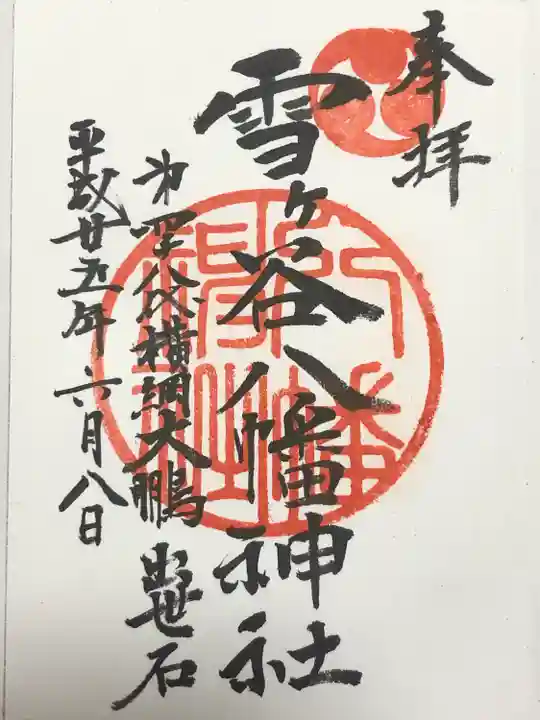 奉拝
雪ヶ谷八幡神社
第四十八代横綱大鵬 出世石
平成廿五年六月八日